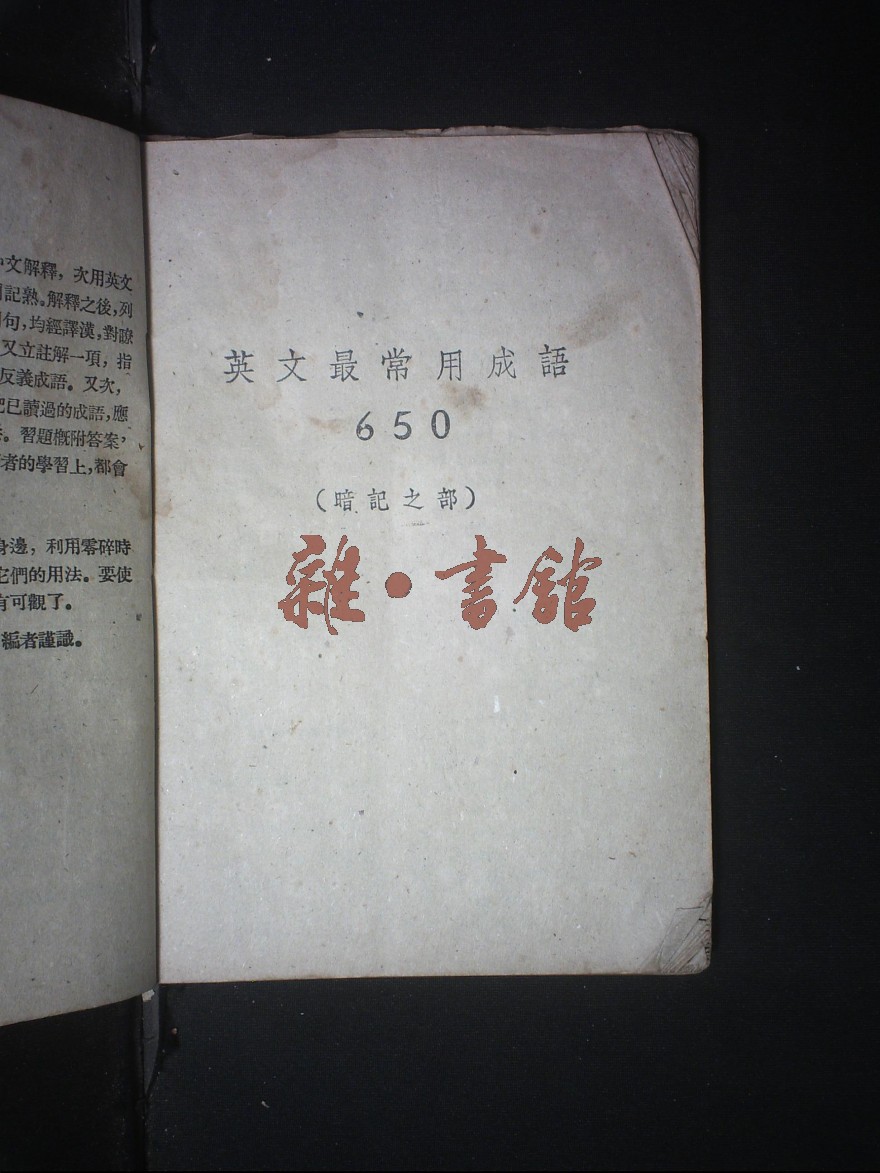 中文解釋，次用英文
記熟。解釋之後，列
句，均經譯漢，對照
又立註解一項，指
反義成語。又次，
把已讀過的成語，應
。習題概附答案，
者的學習上，都會
身邊，利用零碎時
它們的用法。要使
有可觀了。
編者謹識。
英文最常用成語
650
（暗記之部）
雜·書館